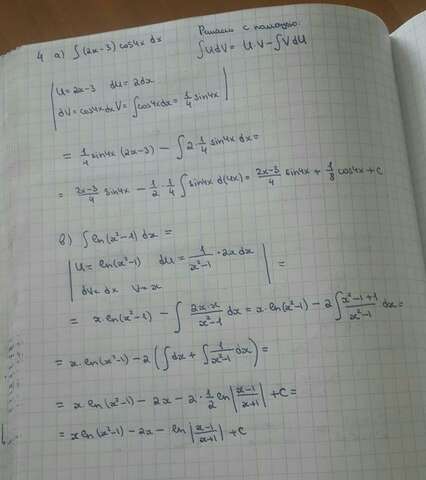 4 а) ∫(2x-3) cos4x dx
Решаем с помощью:
∫UdV = U·V - ∫VdU
U = 2x-3 dU = 2dx
dV = cos4x dx V = ∫cos4x dx = 1/4 sin4x
= 1/4 sin4x (2x-3) - ∫2·1/4 sin4x dx =
= (2x-3)/4 sin4x - 1/2·1/4 ∫sin4x d(4x) = (2x-3)/4 sin4x + 1/8 cos4x + C
в) ∫ln(x²-1) dx =
| U = ln(x²-1) dU = 1/(x²-1)·2x dx | =
dV = dx V = x
= x·ln(x²-1) - ∫(2x·x)/(x²-1) dx = x·ln(x²-1) - 2∫(x²-1+1)/(x²-1) dx =
= x·ln(x²-1) - 2(∫dx + ∫1/(x²-1) dx) =
= x ln(x²-1) - 2x - 2·1/2 ln|(x-1)/(x+1)| + C =
= x ln(x²-1) - 2x - ln|(x-1)/(x+1)| + C